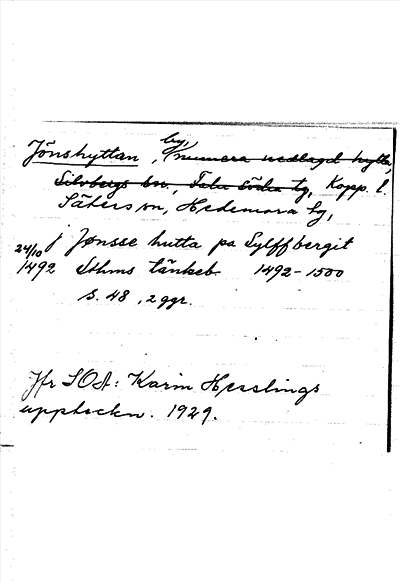 Jönshyttan, by, numera nedlagd hytta,
Silvbergs sn, Falu södra tg, Kopp. l.
Säters sn, Hedemora tg,
24/10 j Jønsse hutta pa Sylffbergit
1492 Sthms tänkeb. 1492-1500
s. 48, 2 ggr.
Jfr SOA: Karin Hesslings
uppteckn. 1929.